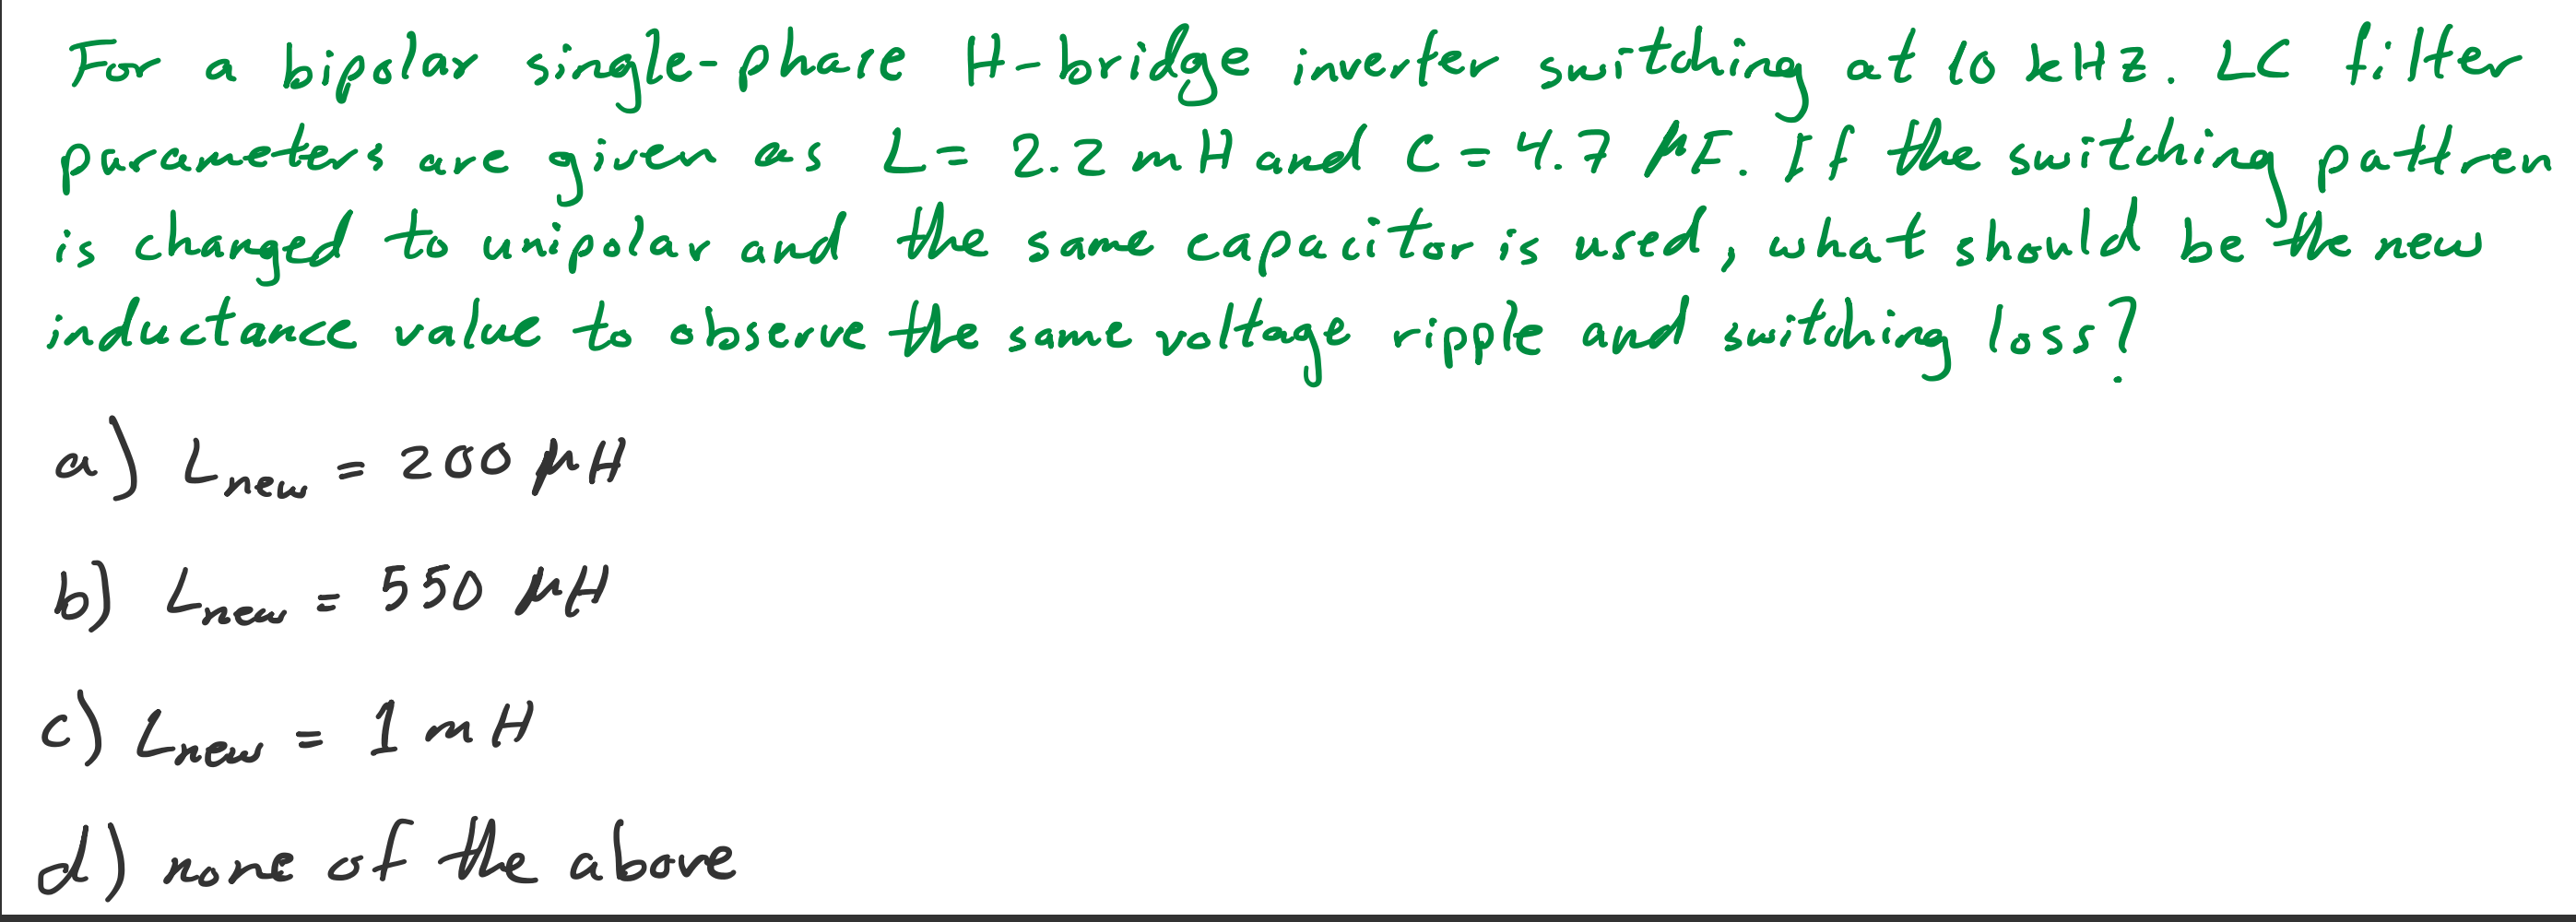 For a bipolar single-phase H-bridge inverter switching at 10 kHz. LC filter
parameters are given as L = 2.2 mH and C = 4.7 μF. If the switching pattren
is changed to unipolar and the same capacitor is used, what should be the new
inductance value to observe the same voltage ripple and switching loss?
a) Lnew = 200 μH
b) Lnew = 550 μH
c) Lnew = 1 mH
d) none of the above